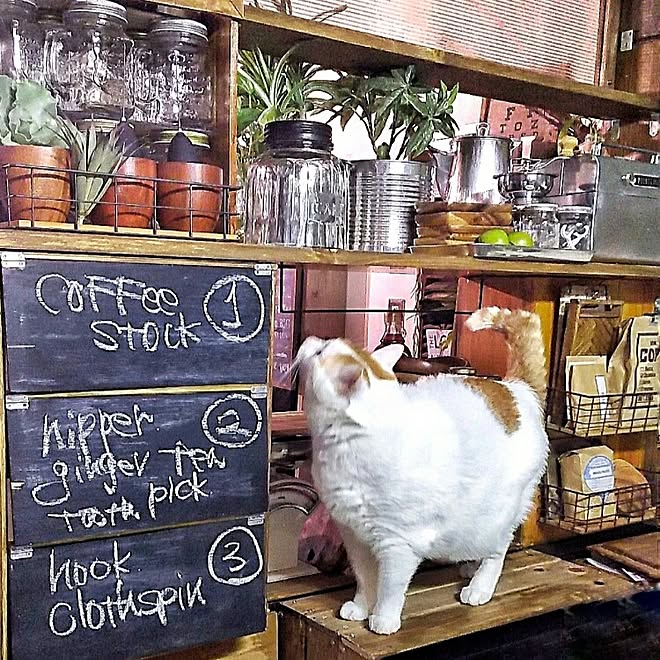 COFFEE
STOCK
1
nipper
2
ginger Tea
Tooth pick
hook
3
Clothspin